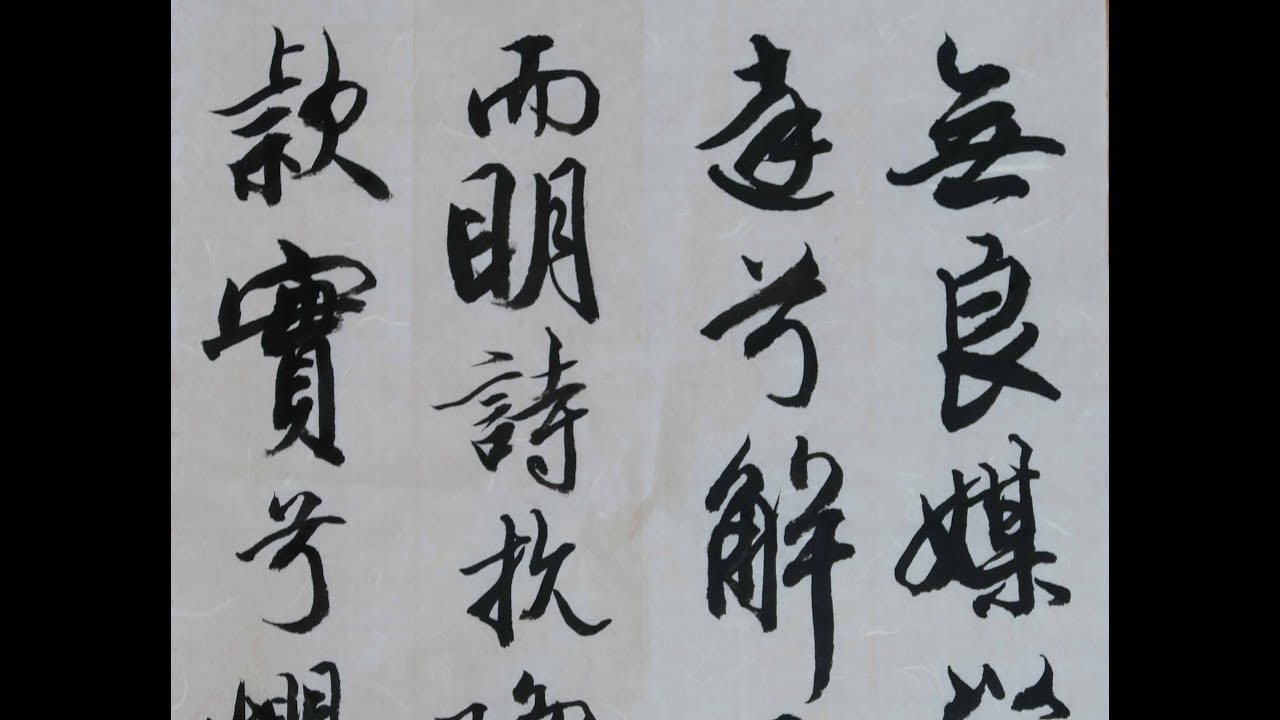 無良媒以
達兮解
而明詩抗
款實兮懼